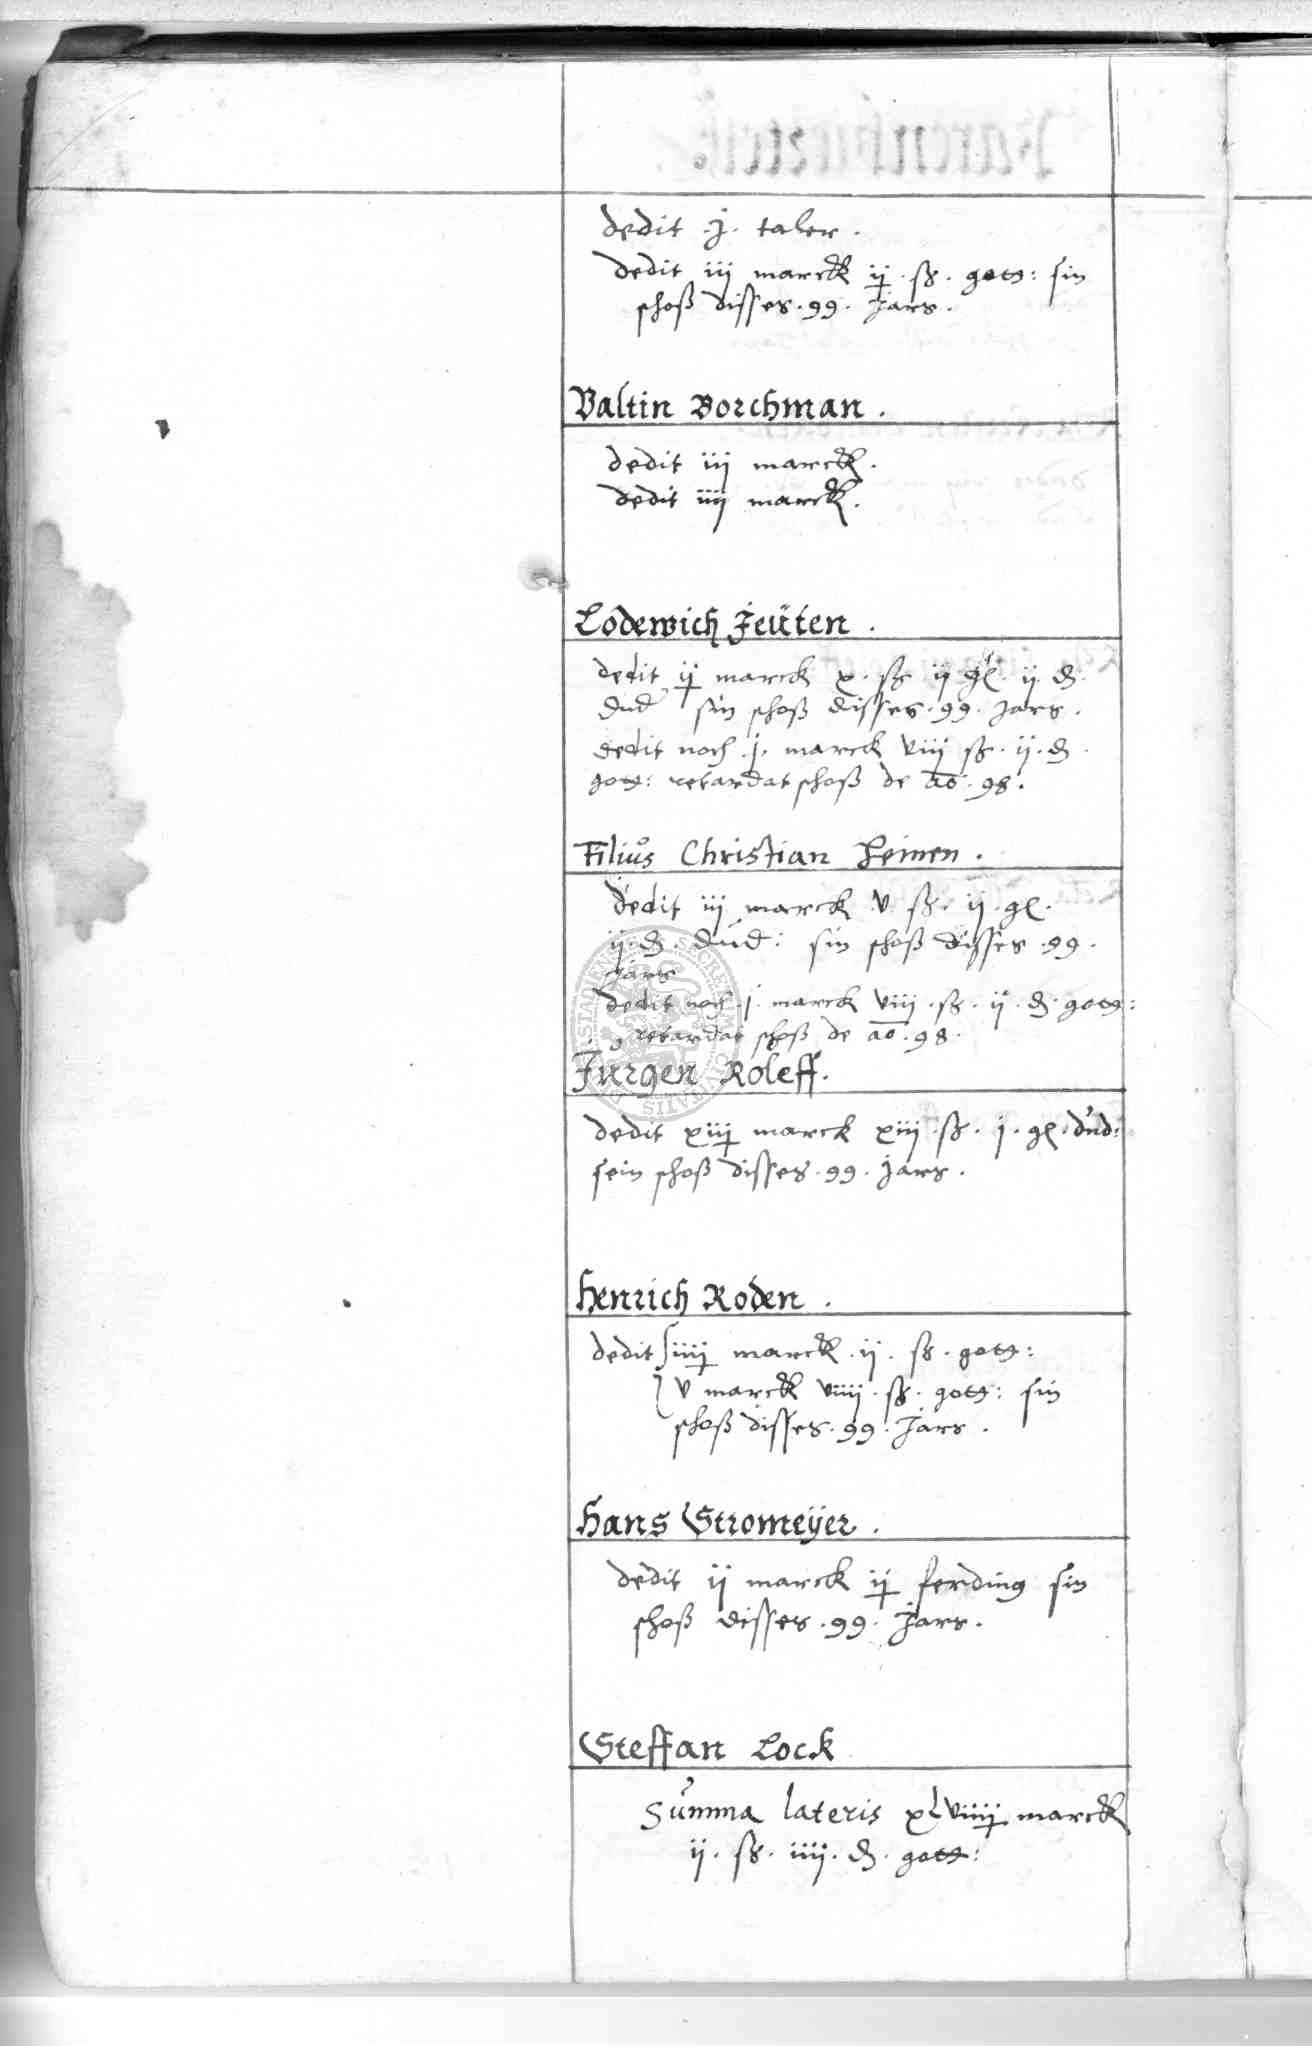 dedit .j. taler .
dedit iij marck ij . ß . gott: sin
schoß disses . 99 . jars .
Valtin Borchman .
dedit iij marck .
dedit iiij marck .
Lodewich Jeüten .
dedit ij marck x . ß ij gl . ij . d .
dud sin schoß disses . 99 . jars .
dedit noch .j. marck viij ß . ij . d .
gott: retardat schoß de ao . 98 .
Filius Christian Heinen .
dedit iij marck v ß . ij . gl .
ij . d . dud : sin schoß disses . 99 .
jars
dedit noch .j. marck viij . ß . ij . d . gott:
retardat schoß de ao . 98 .
Jurgen Roleff .
dedit xiij marck xiij . ß . j . gl . dud:
sein schoß disses . 99 . jars .
Henrich Roden .
dedit iiij marck . ij . ß . gott:
v marck viiij . ß . gott: sin
schoß disses . 99 . Jars .
Hans Stromeÿer .
dedit ij marck ij ferding sin
schoß disses . 99 . Jars .
Steffan Lock
Summa lateris xlviiij marck
ij . ß . iiij . d . gott: